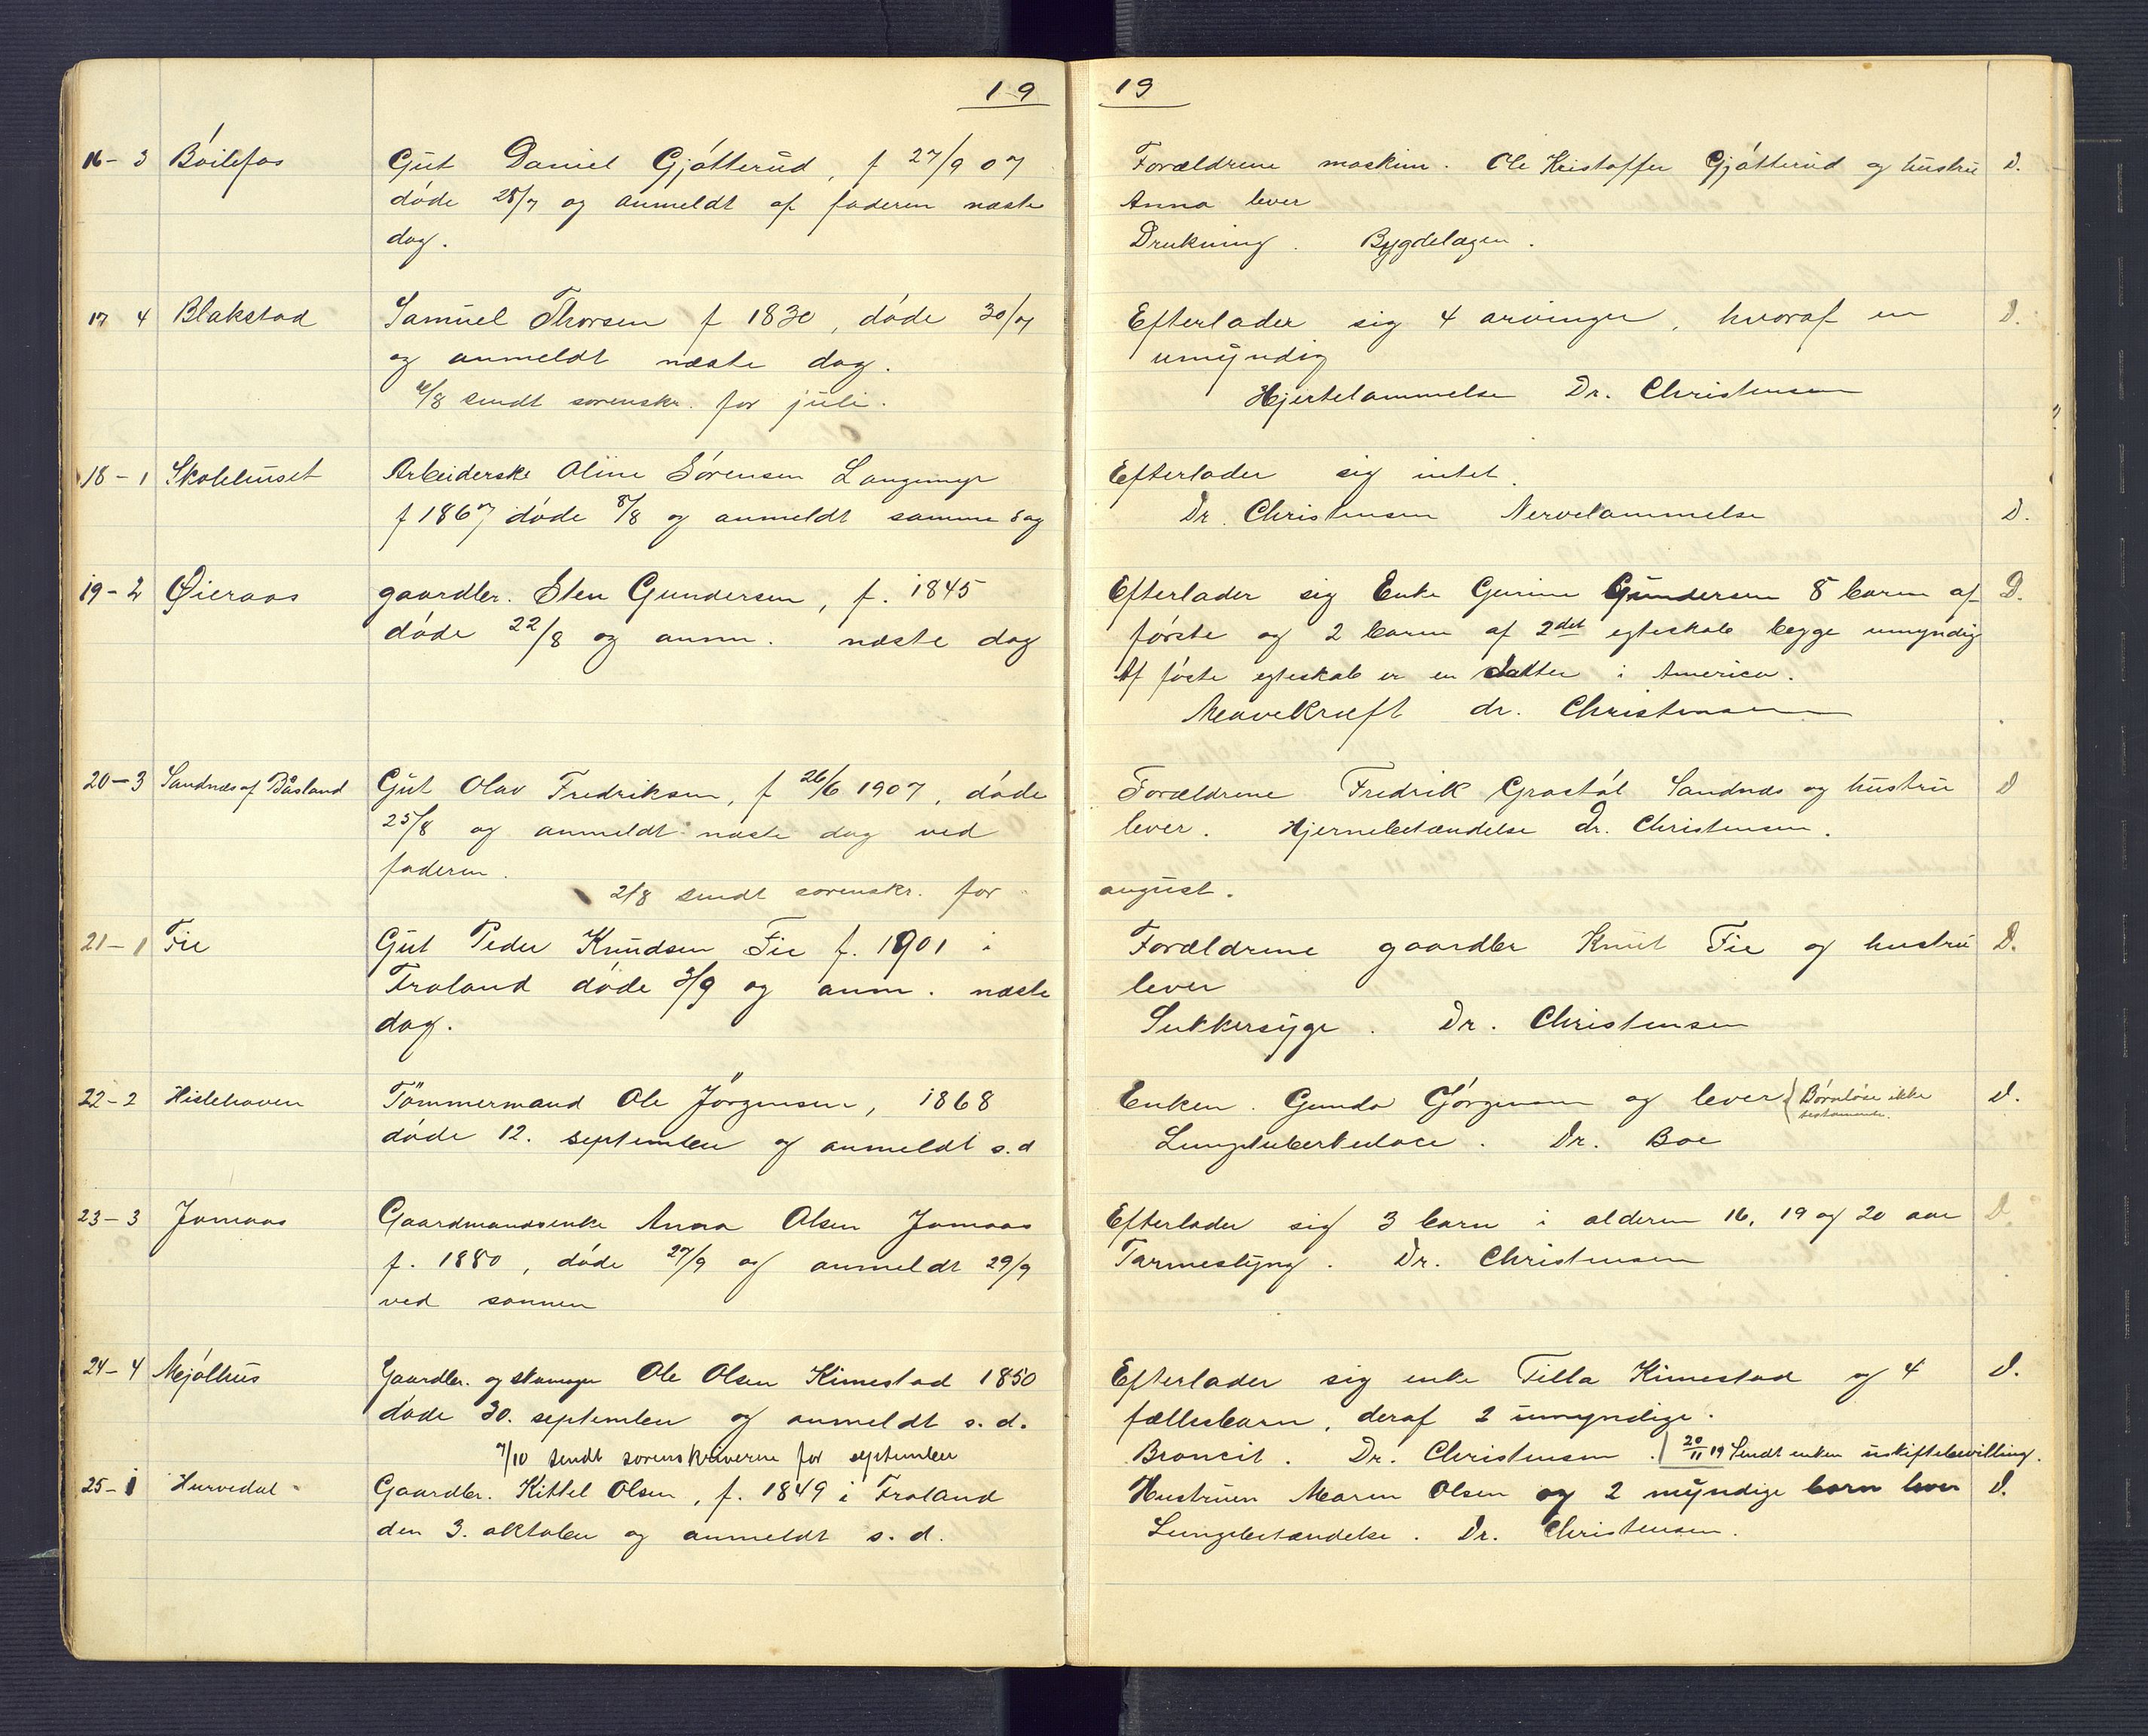 19
16-3 Bøilefos Gut Daniel Gjøtterud, f 27/9 07
døde 28/7 og anmeldt af faderen næste
dag.
17 4 Blakstad Samuel Thorsen f 1830, døde 30/7
og anmeldt næste dag.
4/8 sendt sorenskr. for juli.
18-1 Skolehuset Arbeiderske Oline Sørensen Langemyr
f 1867 døde 8/8 og anmeldt samme dag
19-2 Øieraas gaardbr. Sten Gundersen, f. 1845
døde 22/8 og anm. næste dag
20-3 Sandnæs af Båsland Gut Olav Fredriksen, f 26/6 1907, døde
25/8 og anmeldt næste dag ved
faderen.
2/8 sendt sorenskr. for
21-1 Fie Gut Peder Knudsen Fie f. 1901 i
Froland døde 3/9 og anm. næste
dag.
22-2 Hislehaven Tömmermand Ole Jörgensen, 1868
døde 12. september og anmeldt s.d
23-3 Jomaas Gaardmandsenke Anna Olsen Jomaas
f. 1880, døde 27/9 og anmeldt 29/9
ved sønnen
24-4 Mjølhus Gaardbr. og Ole Olsen Kimestad 1850
døde 30. september og anmeldt s. d.
7/10 sendt sorenskriveren for september
25-1 Hurvedal Gaardbr. Kittel Olsen, f. 1849 i Froland
den 3. oktober og anmeldt s. d.
19
Forældrene maskinn. Ole Kristoffer Gjøtterud og hustru D.
Anna lever
Drukning. Bygdelægen.
Efterlader sig 4 arvinger, hvoraf en D.
umyndig
Hjertelammelse Dr. Christensen
Efterlader sig intet.
Dr. Christensen Nervelammelse D.
Efterlader sig Enke Gunda Gundersen 8 barn af D.
første og 2 barn af 2det egteskab begge umyndig
Af føste egteskab er en datter i America.
Mavekræft dr. Christensen
Forældrene Fredrik Grastøl Sandnæs og hustru D
lever. Hjernebetændelse dr. Christensen.
august.
Forældrene gaardbr Knut Fie og hustru D.
lever
Sukkersyge. Dr. Christensen
Enken. Gunda Jörgensen og lever (Børnløse ikke D.
testamente.
Lungetuberkulose. Dr. Boe
Efterlader sig 3 barn i alderen 16, 19 og 20 aar D.
Tarmeslyng. Dr. Christensen
Efterlader sig enke Tilla Kimestad og 4 D.
fællesbarn, deraf 2 umyndige.
Broncit. Dr. Christensen. (20/11 19 Sendt enken uskiftebevilling.
Hustruen Maren Olsen og 2 myndige barn lever D.
Lungebetændelse. Dr. Christensen.